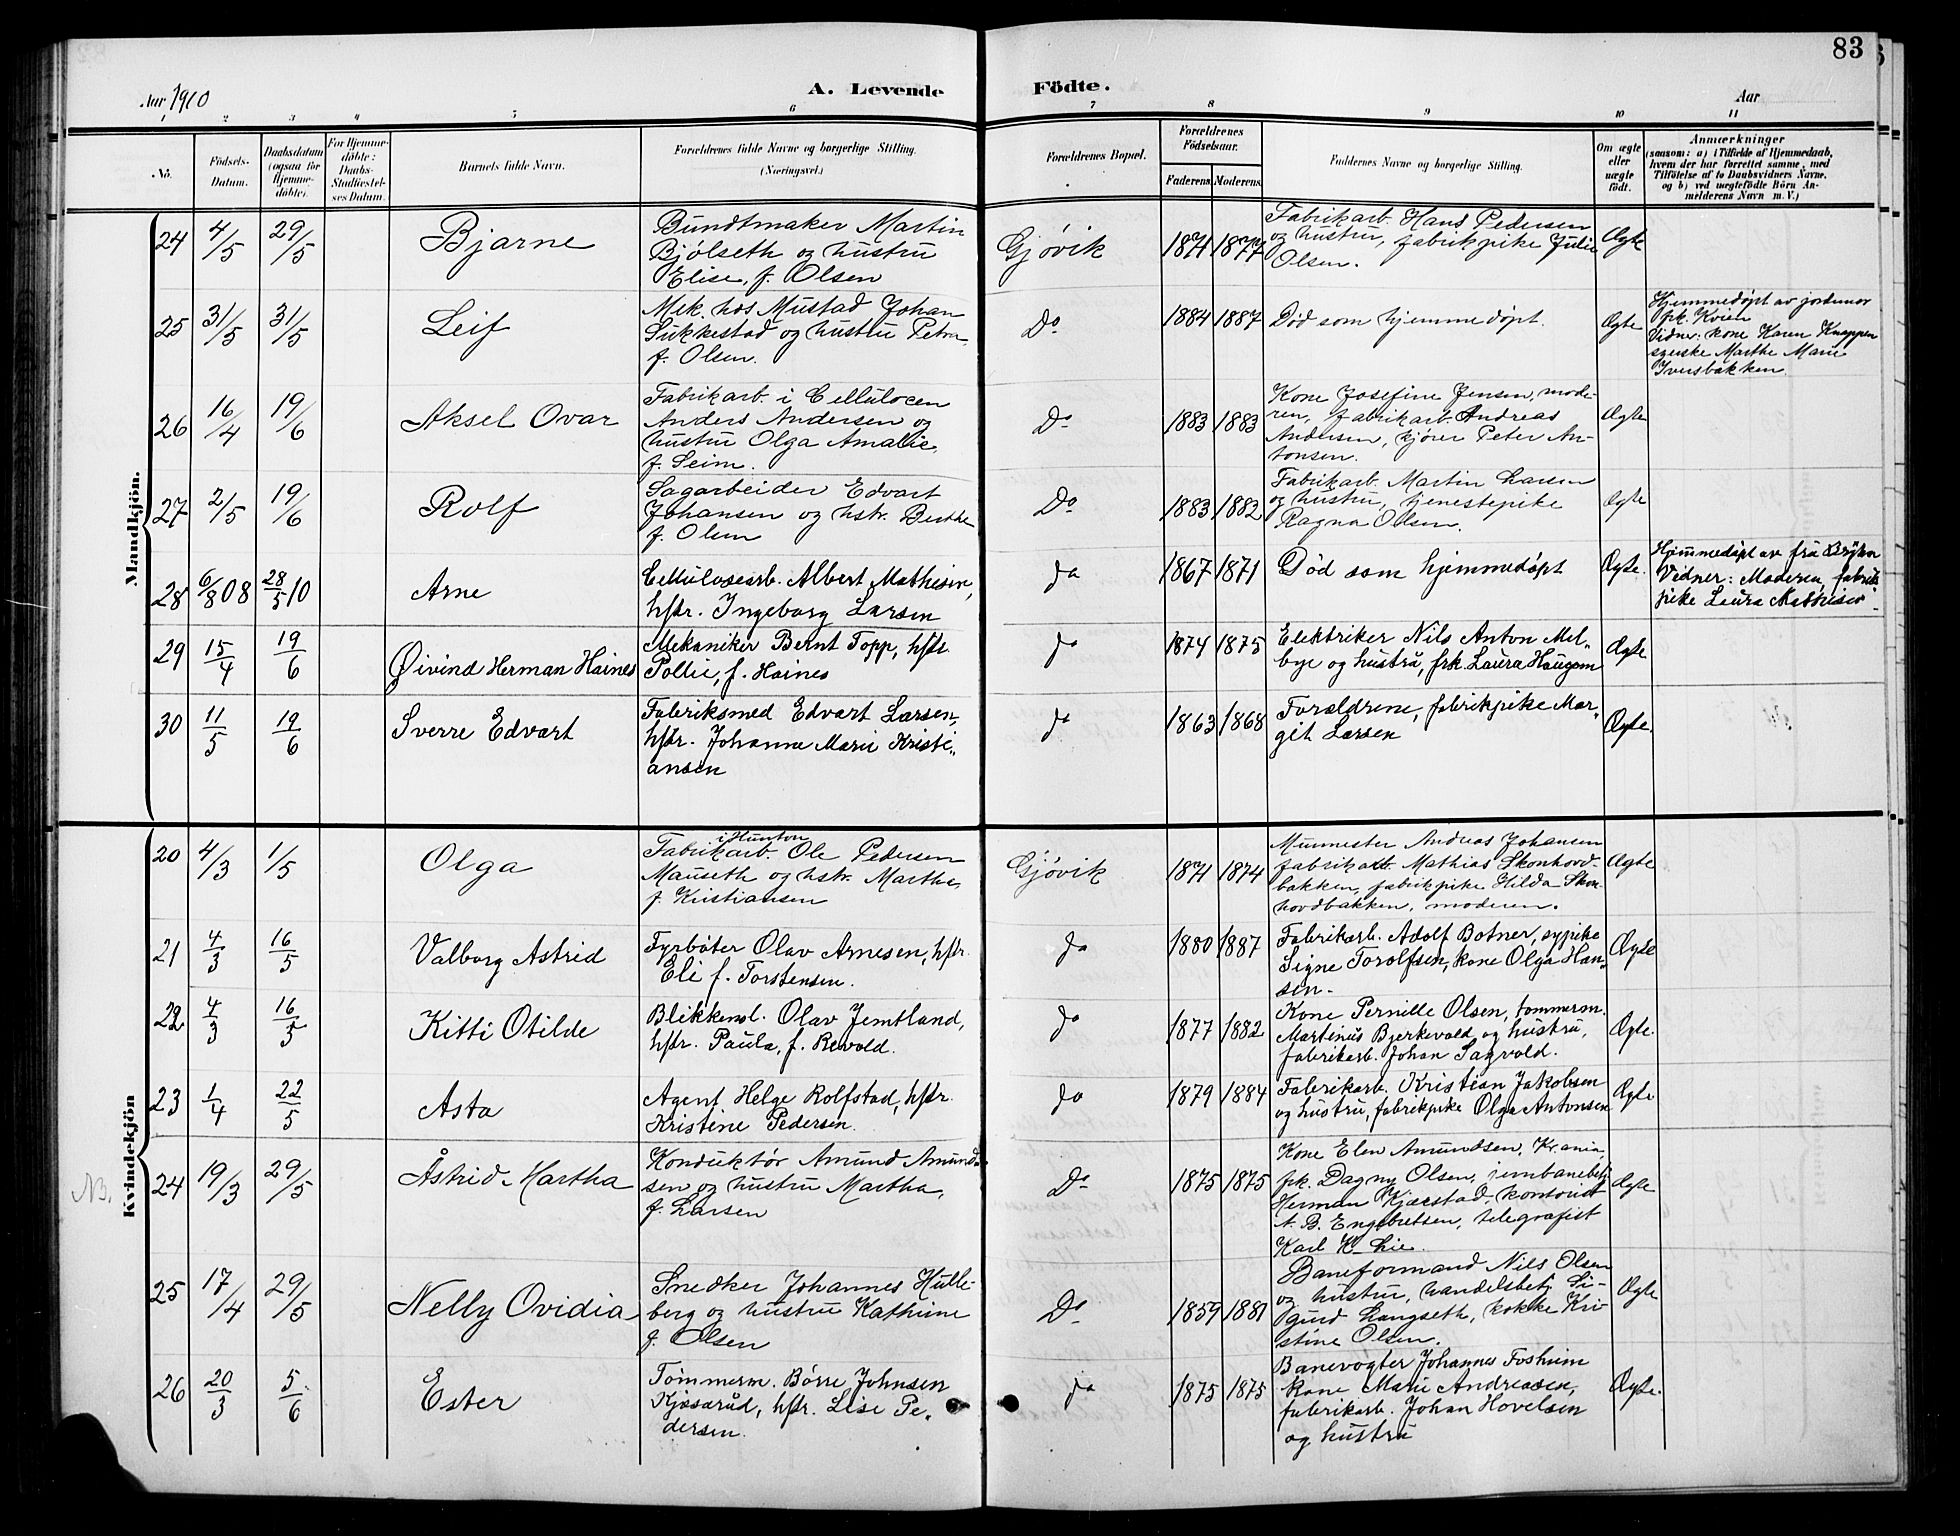 83
Aar 1910
A. Levende Födte.
Aar
1 2 3 4 5 6 7 8 9 10 11
No.
Födsels-Datum.
Daabsdatum (ogsaa for Hjemmedöbte).
For Hjemmedöbte: Daabs-Stadfæstelses Datum.
Barnets fulde Navn.
Forældrenes fulde Navne og borgerlige Stilling.
(Næringsvei.)
Forældrenes Bopæl.
Forældrenes Födselsaar.
Faderens.
Moderens.
Faddernes Navne og borgerlige Stilling.
Om ægte eller uægte födt.
Anmærkninger
(saasom: a) i Tilfælde af Hjemmedaab,
hvem der har forrettet samme, med
Tilföielse af to Daabsvidners Navne.
og b) ved uægtefödte Börn Anmelderens Navn m. V.)
Mandkjön.
24 4/5 29/5 Bjarne
Bundtmaker Martin
Bjølseth og hustru
Elise, f. Olsen
Gjøvik 1871 1877
Fabrikarb. Hans Pedersen
og hustru, fabrikpike Julie
Olsen.
Ægte
25 31/5 31/5 Leif
Mek. hos Mustad Johan
Sukkestad og hustru Petra
f. Olsen.
Do 1884 1887
Død som hjemmedøpt.
Ægte
Hjemmedøpt av jordmor
frk. Kvien
Vidner: kone Karen Knappen
syerske Marthe Marie
Iversbakken
26 16/4 19/6 Aksel Ovar
Fabrikarb. i Cellulocen
Anders Andersen og
hustru Olga Amalie,
f. Seim.
Do 1883 1883
Kone Josefine Jensen, mode-
ren, fabrikarb. Andreas
Andersen, kjører Peter An-
tonsen.
Ægte
27 2/5 19/6 Rolf
Sagarbeider Edvart
Johansen og hstr. Berthe
f. Olsen
Do 1883 1882
Fabrikarb. Martin Larsen
og hustru, tjenestepike
Ragna Olsen.
Ægte
28 6/8 08 28/5 10 Arne
Cellulosearb. Albert Mathisen,
hstr. Ingeborg Larsen
do 1867 1871
Død som hjemmedøpt
Ægte.
Hjemmedøpt av fru
Vidner: Moderen, fabrik
pike Laura Mathisen
29 15/4 19/6 Øivind Herman Haines
Mekaniker Bernt Topp, hstr.
Pollie, f. Haines
do 1874 1875
Elektriker Nils Anton Mel-
bye og hustru, frk. Laura Haugom
Ægte
30 11/5 19/6 Sverre Edvart
Fabriksmed Edvart Larsen,
hstr. Johanne Marie Kristi-
ansen
do 1863 1868
Forældrene, fabrikpike Mar-
git Larsen
Ægte.
Kvindekjön
20 4/3 1/5 Olga
i Hunton
Fabrikarb. Ole Pedersen
Mauseth og hstr. Martha,
f. Kristiansen
Gjøvik 1871 1874
Murmester Andreas Johansen
fabrikarb. Mathias Skonhovd-
bakken, fabrikpike Hilda Skon-
hovdbakken, moderen.
Ægte
21 4/3 16/5 Valborg Astrid
Fyrbøter Olav Arnesen, hstr.
Eli f. Torstensen.
do 1880 1887
Fabrikarb. Adolf Botner, sypike
Signe Torolfsen, kone Olga Han-
sen.
Ægte
22 4/3 16/5 Kitti Otilde
Blikkensl. Olav Jemtland,
hstr. Paula, f. Revold.
do 1877 1882
Kone Pernille Olsen, tømmerm.
Martinus Bjerkevold og hustru,
fabrikarb. Johan Sagvold.
Ægte.
23 1/4 22/5 Asta
Agent Helge Rolfstad, hstr.
Kristine Pedersen.
do 1879 1884
Fabrikarb. Kristian Jakobsen
og hustru, fabrikpike Olga Antonsen
Ægte
NB. 24 19/3 29/5 Åstrid Martha
Konduktør Amund Amund-
sen og hustru Martha,
f. Larsen
Do 1875 1875
Kone Elen Amundsen, Kr.ania,
frk. Dagny Olsen, jernbanebetj.
Herman Kjærstad, kontorist
A. B. Engebretsen, telegrafist
Karl K. Lie.
Ægte
25 17/4 29/5 Nelly Ovidia
Snedker Johannes Hulle-
berg og hustru Kathrine
f. Olsen
Do 1859 1881
Baneformand Nils Olsen
og hustru, handelsbetj. Si-
gurd Langseth, kokke Kri-
stine Olsen.
Ægte
26 20/3 5/6 Ester
Tømmerm. Børre Johnsen
Kjøsarud, hstr. Lise Pe-
dersen.
do 1875 1875
Banevogter Johannes Fosheim
kone Marie Andreasen,
fabrikarb. Johan Hovelsen
og hustru
Ægte.